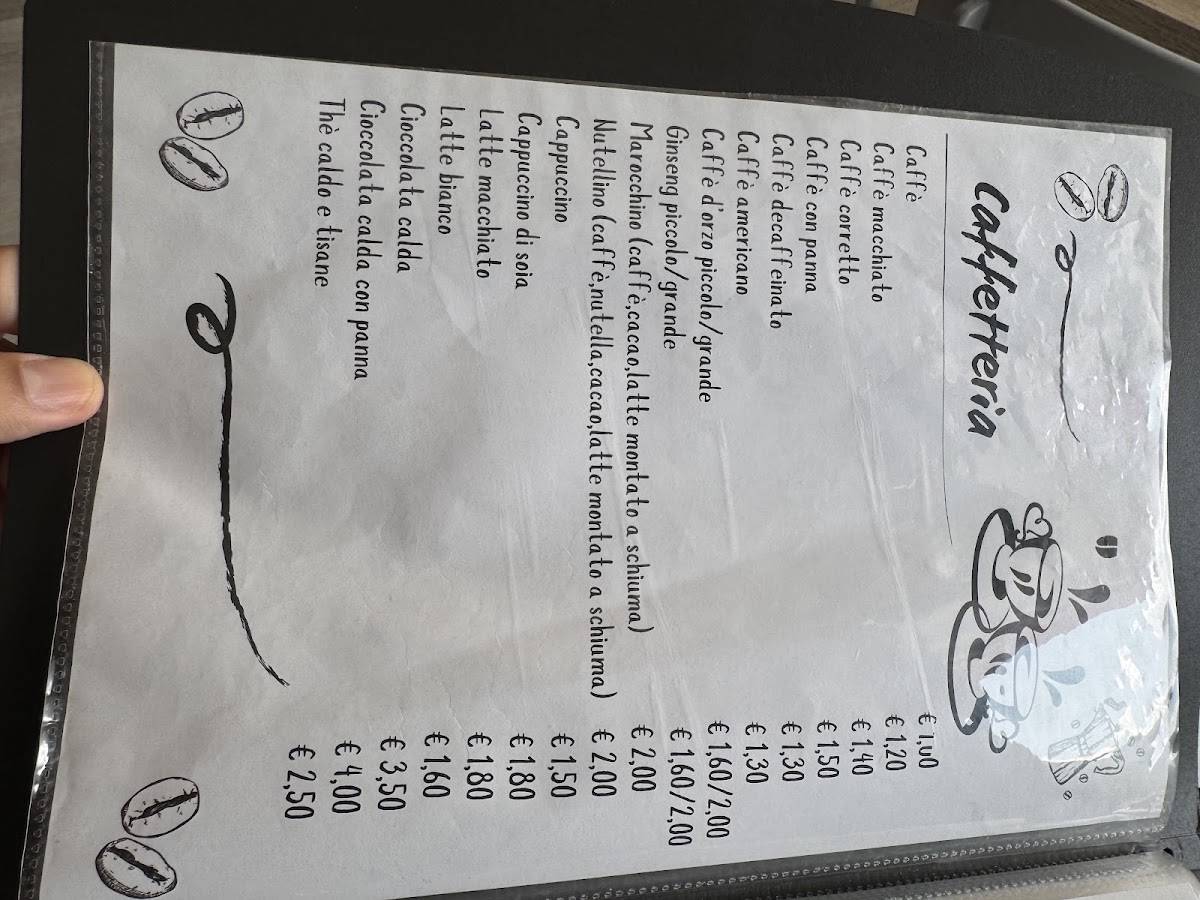 Caffetteria
Caffè € 1,00
Caffè macchiato € 1,20
Caffè corretto € 1,40
Caffè con panna € 1,50
Caffè decaffeinato € 1,30
Caffè americano € 1,30
Caffè d'orzo piccolo/grande € 1,60/2,00
Ginseng piccolo/grande € 1,60/2,00
Marocchino (caffè,cacao,latte montato a schiuma) € 2,00
Nutellino (caffè,nutella,cacao,latte montato a schiuma) € 2,00
Cappuccino € 1,50
Cappuccino di soia € 1,80
Latte macchiato € 1,80
Latte bianco € 1,60
Cioccolata calda € 3,50
Cioccolata calda con panna € 4,00
Thè caldo e tisane € 2,50